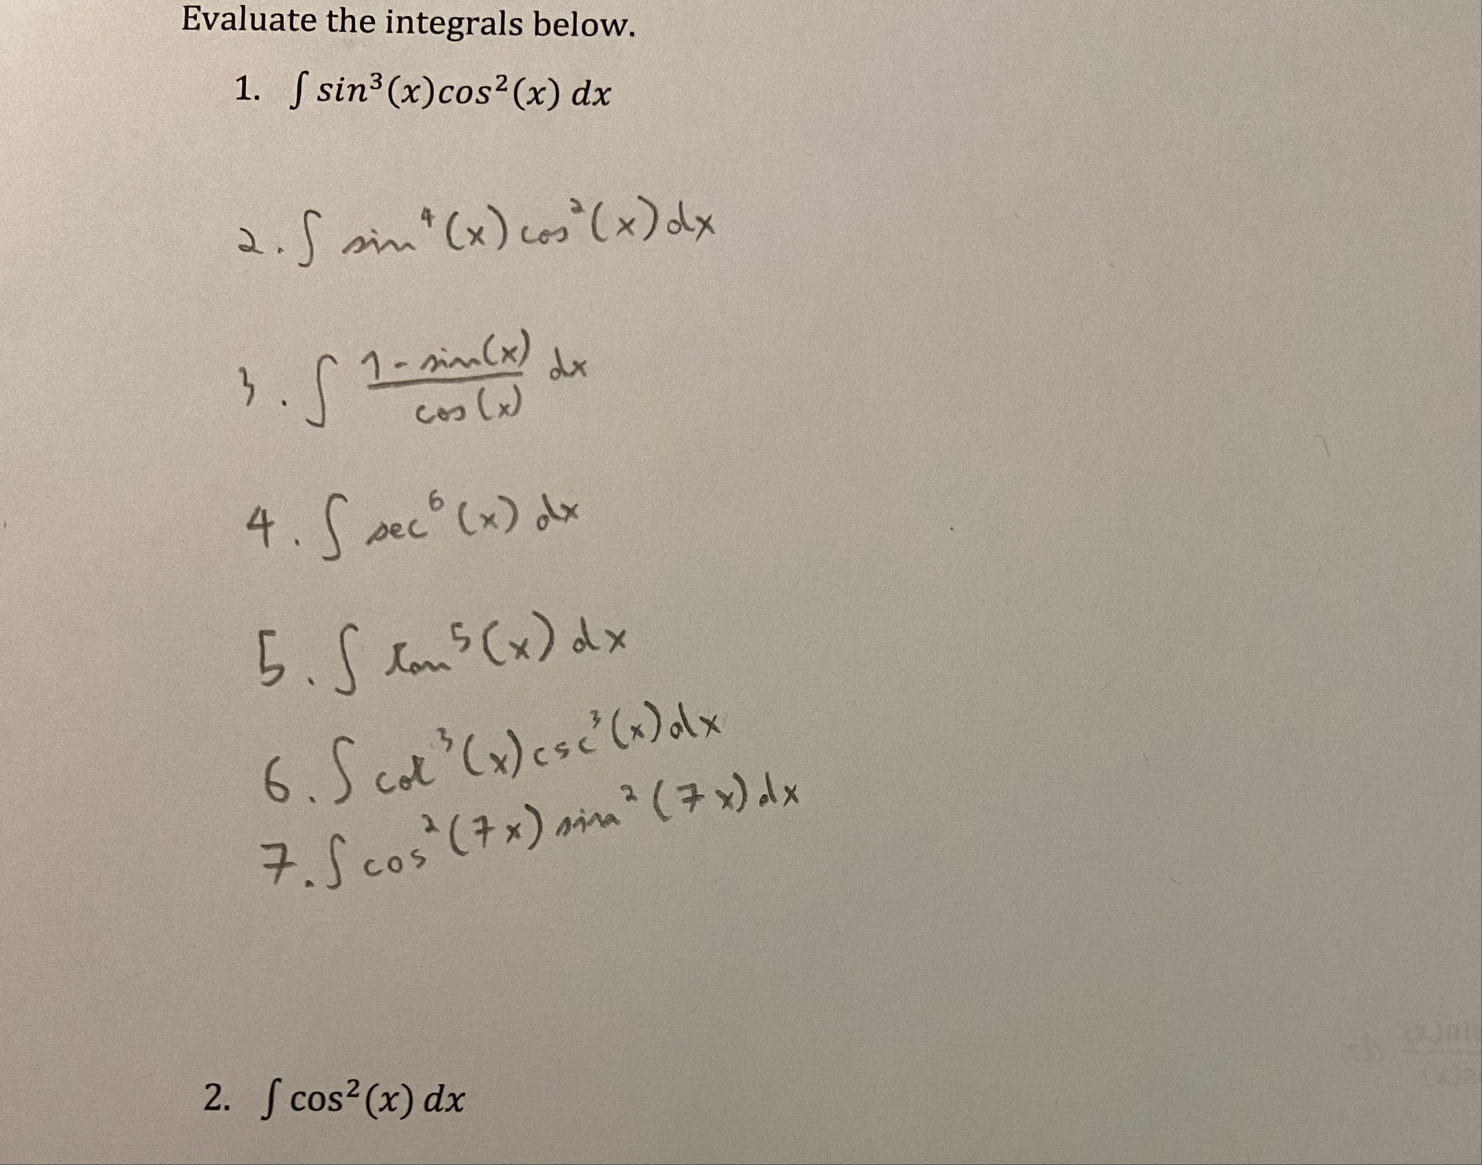 Evaluate the integrals below.
1. ∫ sin³(x)cos²(x) dx
2. ∫ sin⁴(x) cos²(x) dx
3. ∫ (1 - sin(x))/(cos(x)) dx
4. ∫ sec⁶(x) dx
5. ∫ tan⁵(x) dx
6. ∫ cot³(x) csc³(x) dx
7. ∫ cos²(7x) sin²(7x) dx
2. ∫ cos²(x) dx